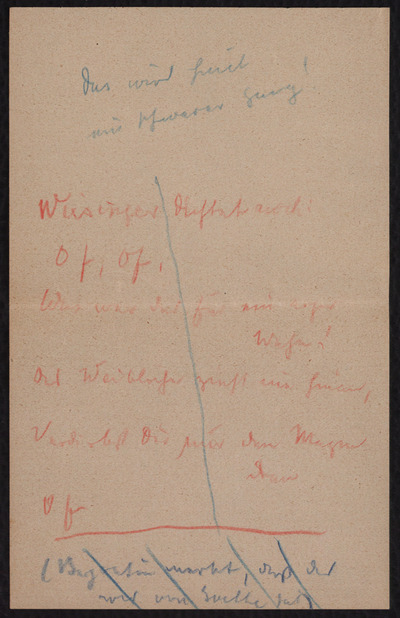 Das wird heut
ein schwerer Gang!
Weisinger dichtet noch:
O f, Of,
Was war das für ein
Wahn!
Das Weibliche zieht uns hinan,
Verdirbst Dir nur den Magen
dran
O f
(Bezwatin merkt, daß das
von Goethe ist)